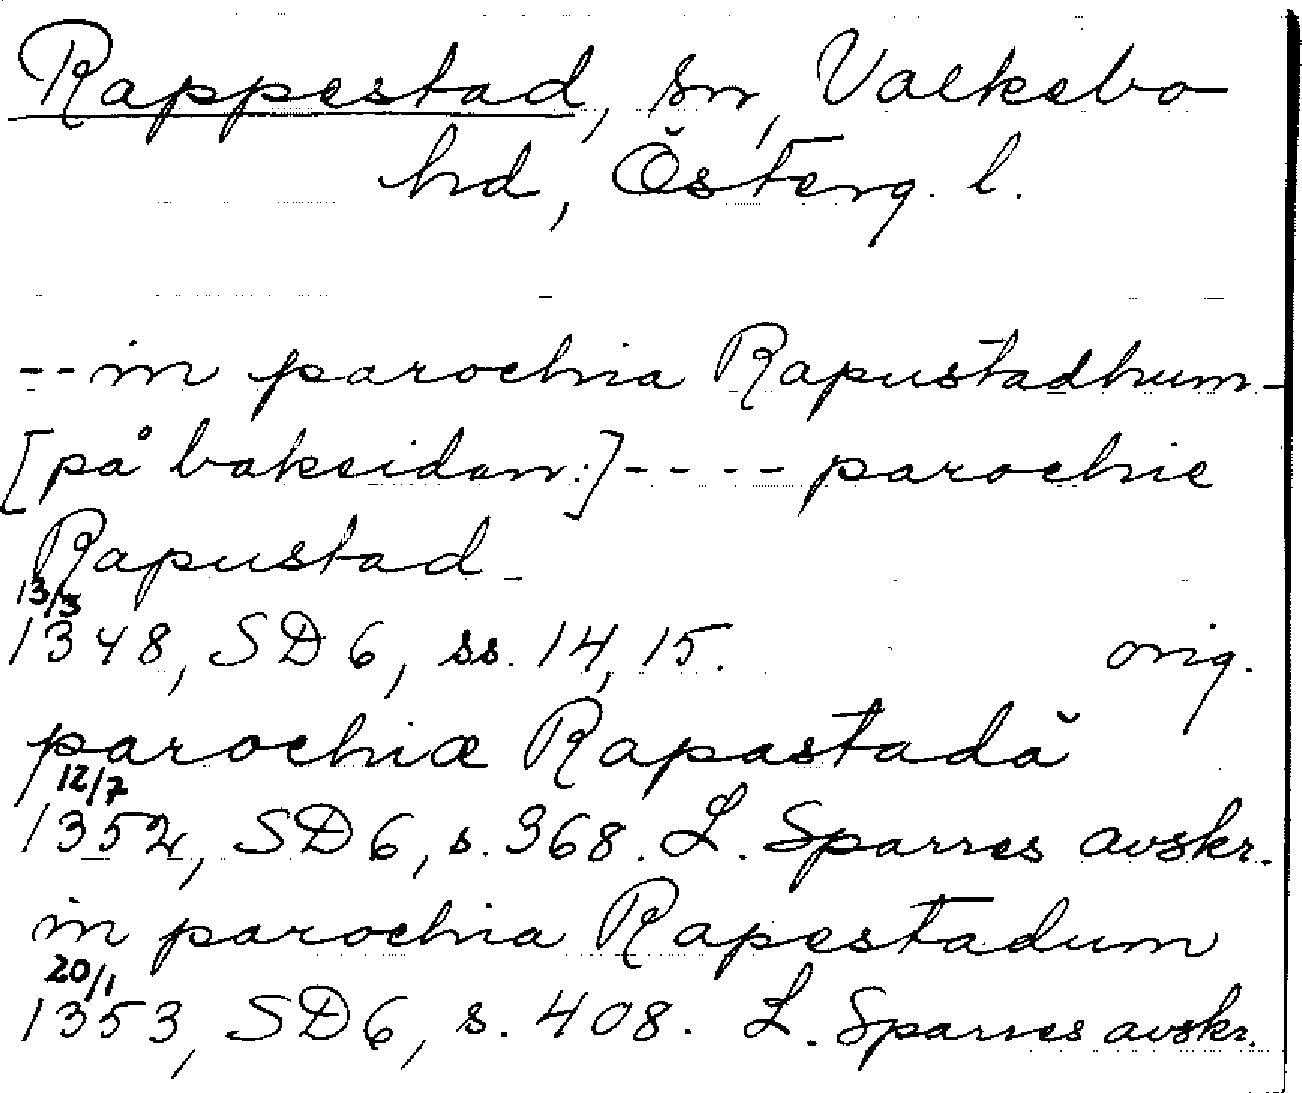 Rappestad, sn, Valkebo
hd, Österg. l.
-- in parochia Rapustadhum -
[på baksidan:] ---- parochie
Rapustad -
13/3
1348, SD 6, ss. 14, 15. orig.
parochiæ Rapastadă
12/7
1352, SD 6, s. 368. L. Sparres avskr.
in parochia Rapestadum
20/1
1353, SD 6, s. 408. L. Sparres avskr.